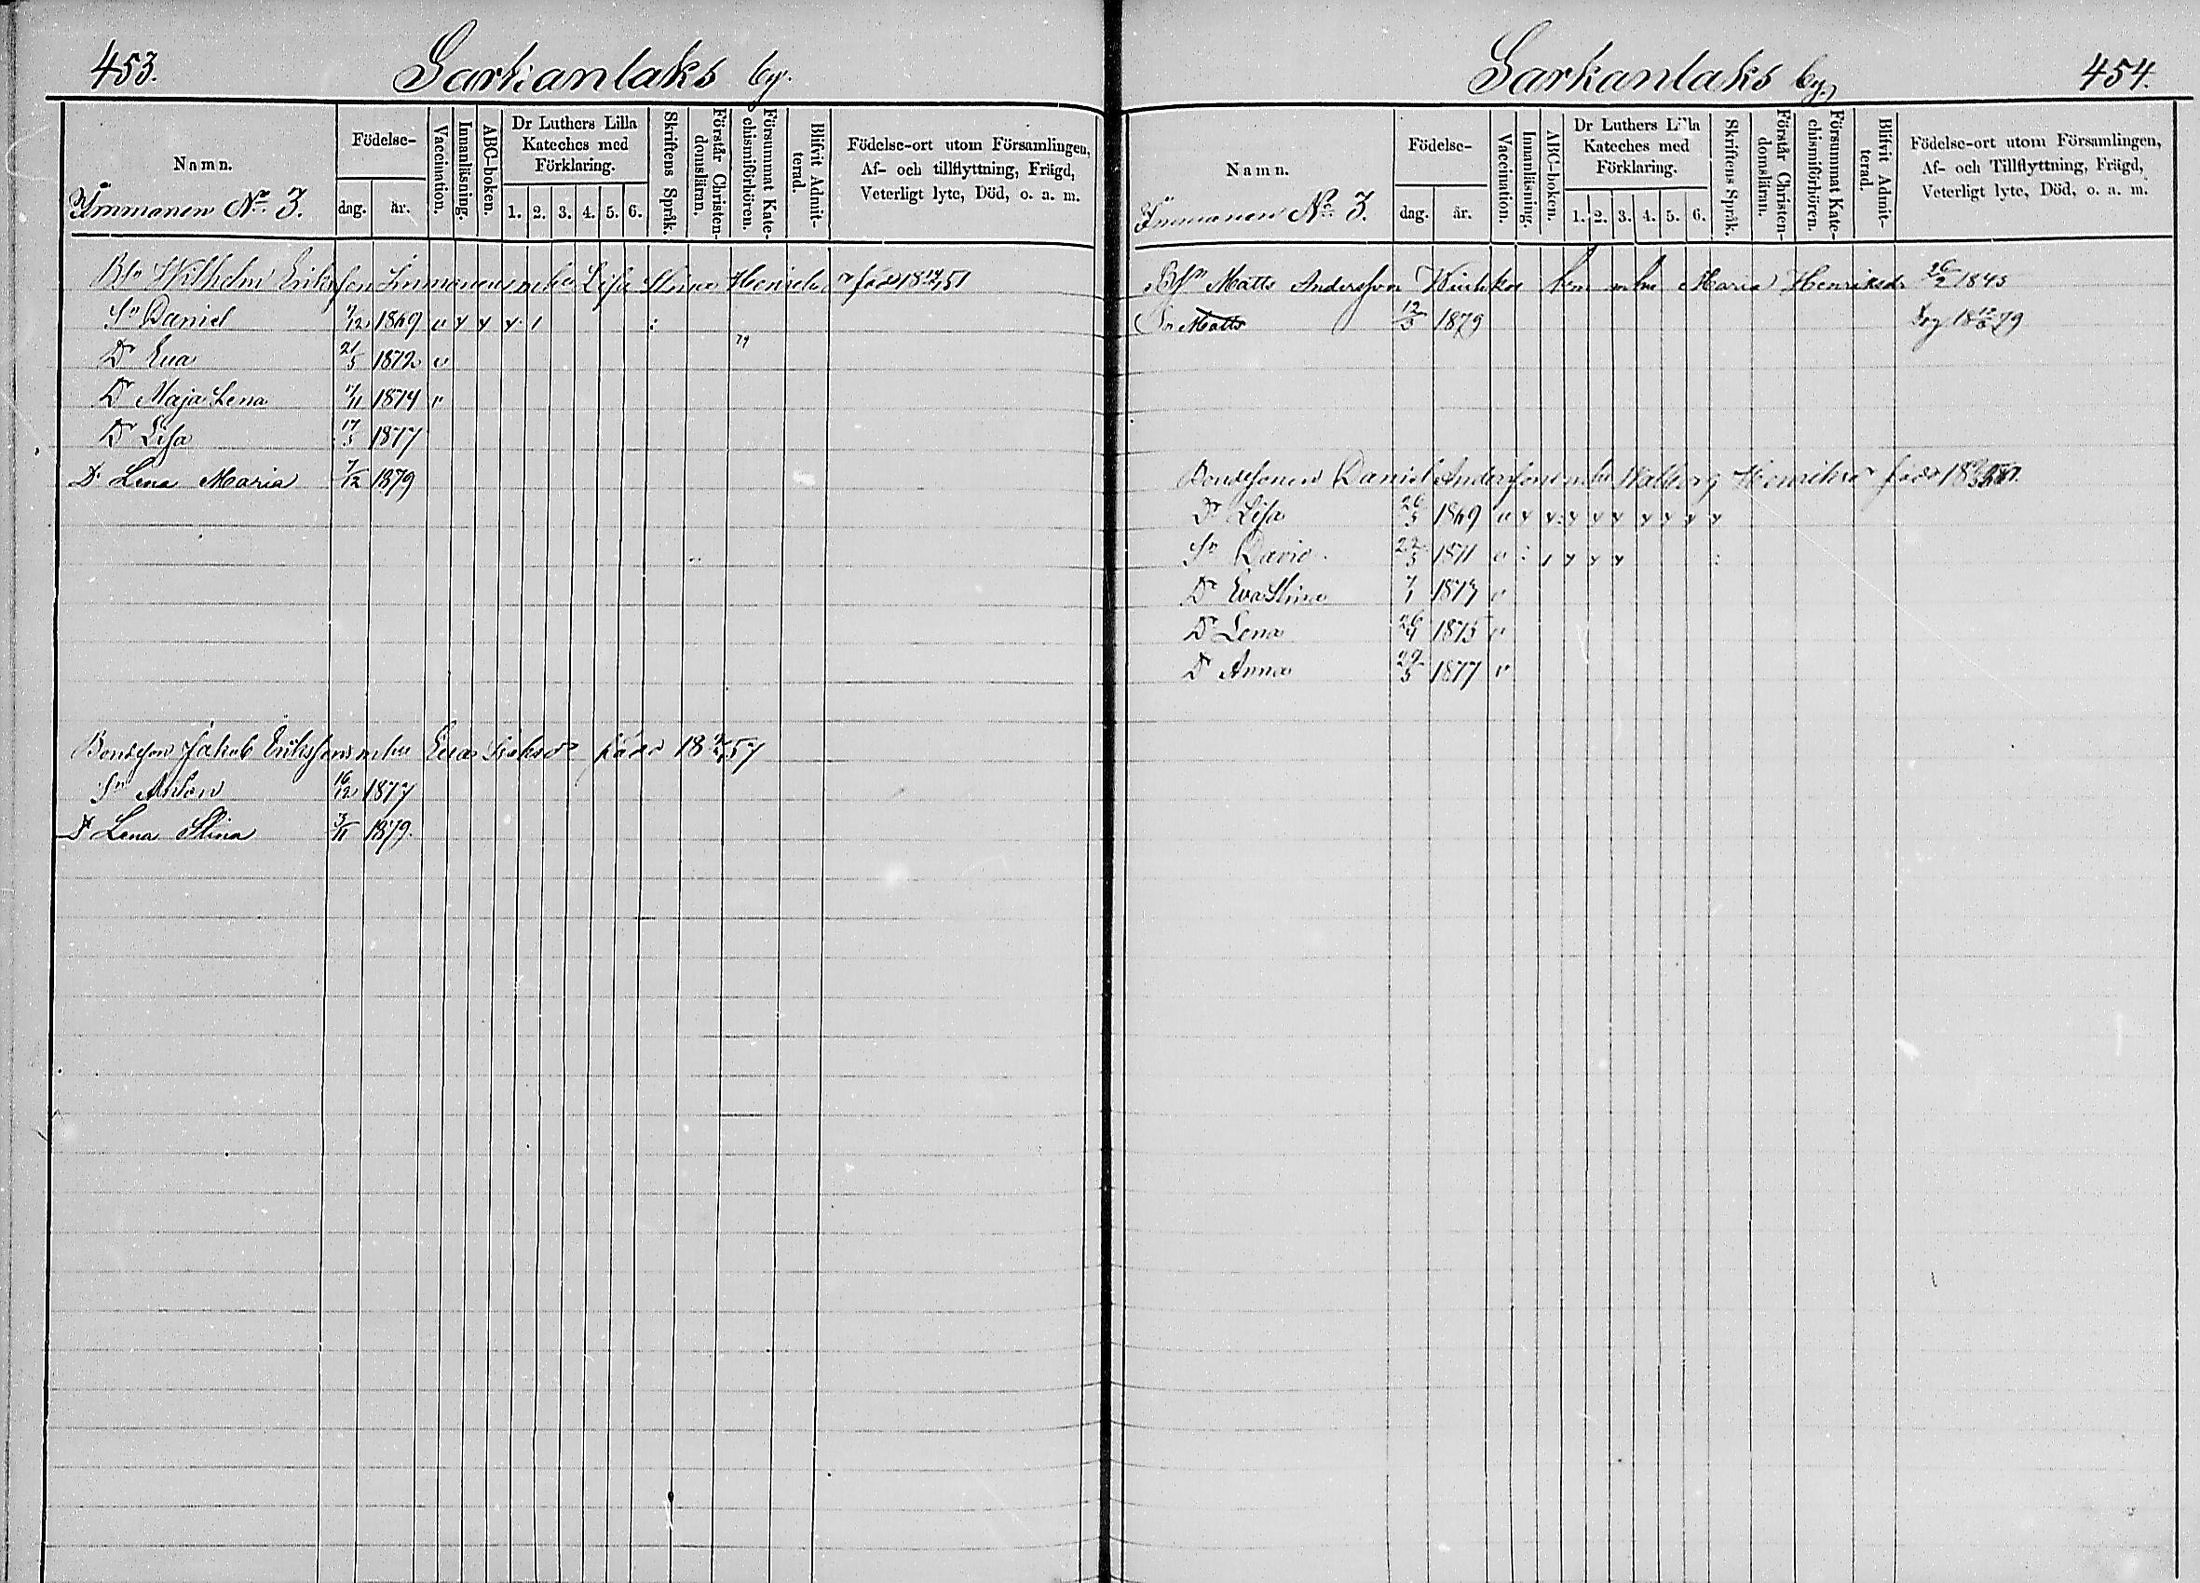 453.
Sarkanlaks by.
Namn.
Immonen No. 3.
Födelse-
dag.
år.
Vaccination.
Innanläsning.
ABC-boken.
Dr Luthers Lilla
Kateches med
Förklaring.
1. 2. 3. 4. 5. 6.
Skriftens Språk.
Förstår Christen-
domsläran.
Försummat Kate-
chismiförhören.
Blifvit Admit-
terad.
Födelse-ort utom Församlingen,
Af- och tillflyttning, Frägd,
Veterligt lyte, Död, o. a. m.
Wilhelm Eriksson Immonens m hu Lisa Stina född
Sn Daniel 1869 v
79
Dr Eva 21/5 1872 v
Dr Maja Lena 1874 v
Dr Lisa 17/5 1877
Dr Lena Maria 7/12 1879
Bondeson Jakob Erikssons m hu Eva född
Sn Anton 16/12 1877
Dr Lena Stina 3/11 1879.
Sarkanlaks by.
454.
Namn.
Immonen No. 3.
Födelse-
dag.
år.
Vaccination.
Innanläsning.
ABC-boken.
Dr Luthers Lilla
Kateches med
Förklaring.
1. 2. 3. 4. 5. 6.
Skriftens Språk.
Förstår Christen-
domsläran.
Försummat Kate-
chismiförhören.
Blifvit Admit-
terad.
Födelse-ort utom Församlingen,
Af- och Tillflyttning, Frägd,
Veterligt lyte, Död, o. a. m.
Matts Andersson m hu Maria Henriksdr 26/2 1843
Sn Matts 12/3 1879
Bondesonen Daniel Anderssons m hu Walborg Henriksdr född
Dr Lisa 26/3 1869 v
Sn David 22/3 1871 v
Dr Eva Stina 1873 v
Dr Lena 26/4 1875 v
Dr Anna 29/3 1877 v